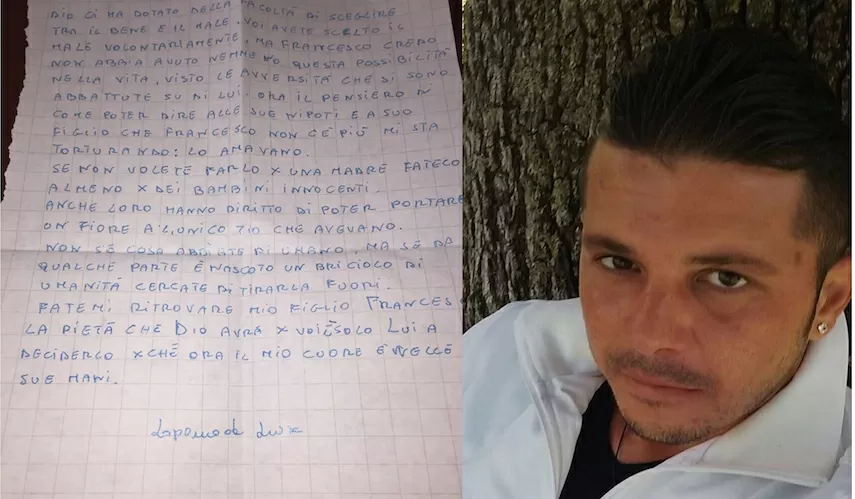 DIO CI HA DOTATO DELLA FACOLTÀ DI SCEGLIRE
TRA IL BENE E IL MALE. VOI AVETE SCELTO IL
MALE VOLONTARIAMENTE, MA FRANCESCO CREDO
NON ABBIA AVUTO NEMMENO QUESTA POSSIBILITÀ
NELLA VITA, VISTO LE AVVERSITÀ CHE SI SONO
ABBATTUTE SU DI LUI. ORA IL PENSIERO DI
COME POTER DIRE ALLE SUE NIPOTI E A SUO
FIGLIO CHE FRANCESCO NON C'È PIÙ MI STA
TORTURANDO: LO AMAVANO.
SE NON VOLETE FARLO X UNA MADRE FATELO
ALMENO X DEI BAMBINI INNOCENTI.
ANCHE LORO HANNO DIRITTO DI POTER PORTARE
UN FIORE A L'UNICO ZIO CHE AVEVANO.
NON SÈ COSA ABBIATE DI UMANO, MA SE DA
QUALCHE PARTE È NASCOTO UN BRICIOLO DI
UMANITÀ CERCATE DI TIRARLA FUORI.
FATEMI RITROVARE MIO FIGLIO FRANCES
LA PIETÀ CHE DIO AVRÀ X VOI È SOLO LUI A
DECIDERLO XCHÈ ORA IL MIO CUORE È NELLE
SUE MANI.